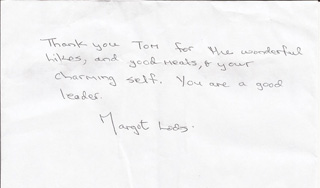 Thank you Tom for the wonderful
hikes, and good meals, & your
charming self. You are a good
leader.
Margot